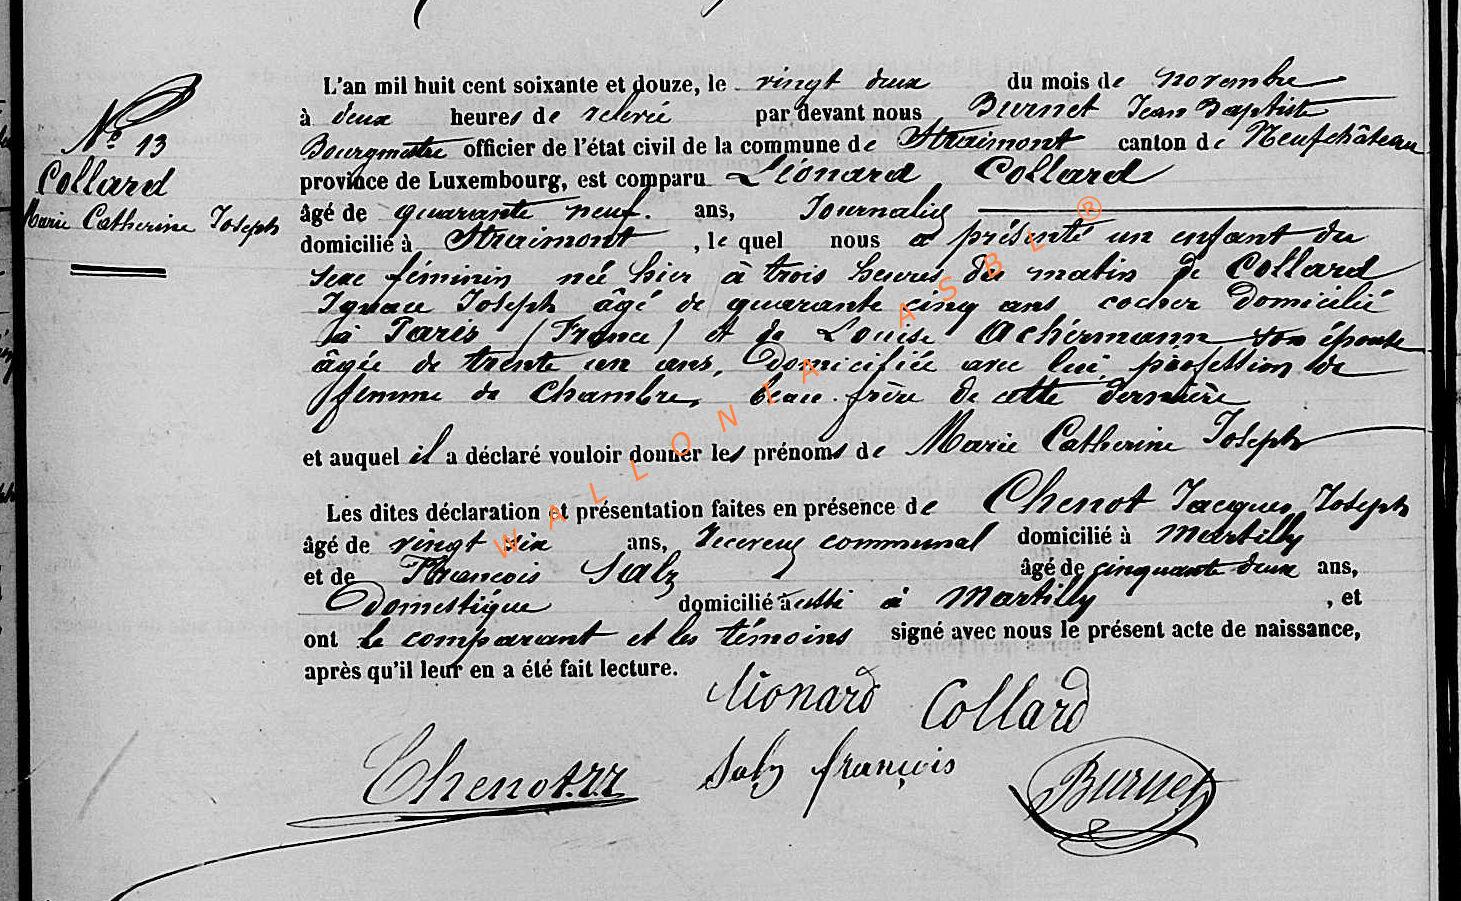 L'an mil huit cent soixante et douze, le vingt deux du mois de novembre
à deux heures de relevée par devant nous Burnet Jean Baptiste
Bourgmestre officier de l'état civil de la commune de Straimont canton de Neufchâteau
province de Luxembourg, est comparu Léonard Collard
N° 13
Collard
Marie Catherine Joseph
âgé de quarante neuf. ans, Journalier
domicilié à Straimont, le quel nous a présenté un enfant du
sexe féminin né hier à trois heures du matin de Collard
Ignace Joseph âgé de quarante cinq ans cocher domicilié
à Paris (France) et de Louise Achérmann son épouse
âgée de trente un ans, domiciliée avec lui, profession de
femme de Chambre, beau-frère de cette dernière
et auquel il a déclaré vouloir donner les prénoms de Marie Catherine Joseph
Les dites déclaration et présentation faites en présence de Chenot Jacques Joseph
âgé de vingt six ans, Receveur communal domicilié à Martilly
et de François Salz âgé de cinquante deux ans,
Domestique domicilié aussi à Martilly, et
ont le comparant et les témoins signé avec nous le présent acte de naissance,
après qu'il leur en a été fait lecture.
léonard Collard
Chenot.JJ Salz françois Burnet
WALLONIA ASBL ®